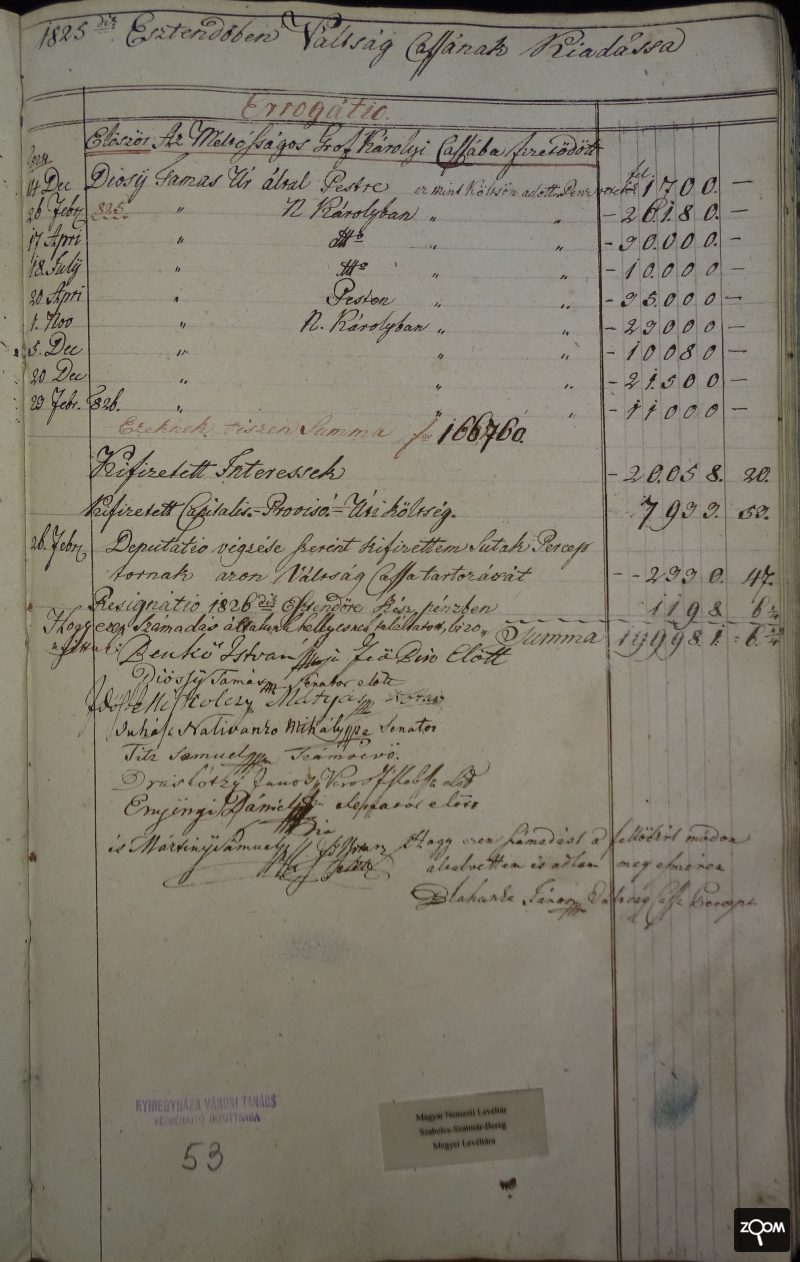 1825 dik Esztendőben Váltság Cassának Kiadássa
Errogátio.
Elöször Az Méltóságos Gróf Károlyi Cassába fizetődött
1824 fl.
14 Dec Diósy Tamás Úr által Pestre ez mint Költsön adott Penz 21700. —
26 Febr 825. " N Károlyban " " - 26180. —
17 Apri " dtto " " - 30.000. —
18. July " dtto " " - 10.000 —
20 Apri " Pesten " " - 35.000 —
1. Nov " N. Károlyban " " - 23000 —
5. Dec " " " - 10080 —
20 Dec " " " - 21.500 —
23 Febr. 826. " " " - 11000 —
Ezeknek tiszen Summa f 166760.
Kifizetett Interessek - 20.058. 20.
Kifizetett Capitalis.- Provisó.- Uti költség. 7933. 53.
26. Febr Deputatio végzése szerént kifizettem Sutak Percep
tornak azon Váltság Cassa tartozását - - 2330. 47.
Resignátio 1826 dik Esztendőre Kész pénzben 1198 6¾
Hogy ezen Számadás általunk hellyesnek találtatott, bizo„ Summa 199981 = 6¾
nyittuk: Benkő István mp Fő Biró Előtt
Diósy Tamás mp Senator előtt
Miskolczy Mátyás mp
Nalivanko Mihály mp Senator
Titz Samuel mp Számvevő.
János Város
Dániel mp előtt
és Mártinyi Samuel mp Hogy ezen számadást a fellőbirt módon
általvettem is adtam meg elmérem
János mp Váltság Cassa Percept
NYIREGYHÁZA VÁROSI TANÁCS
VÉGREHAJTÓ BIZOTTSÁGA
53
Magyar Nemzeti Levéltár
Szabolcs-Szatmár-Bereg
Megyei Levéltára
ZOOM